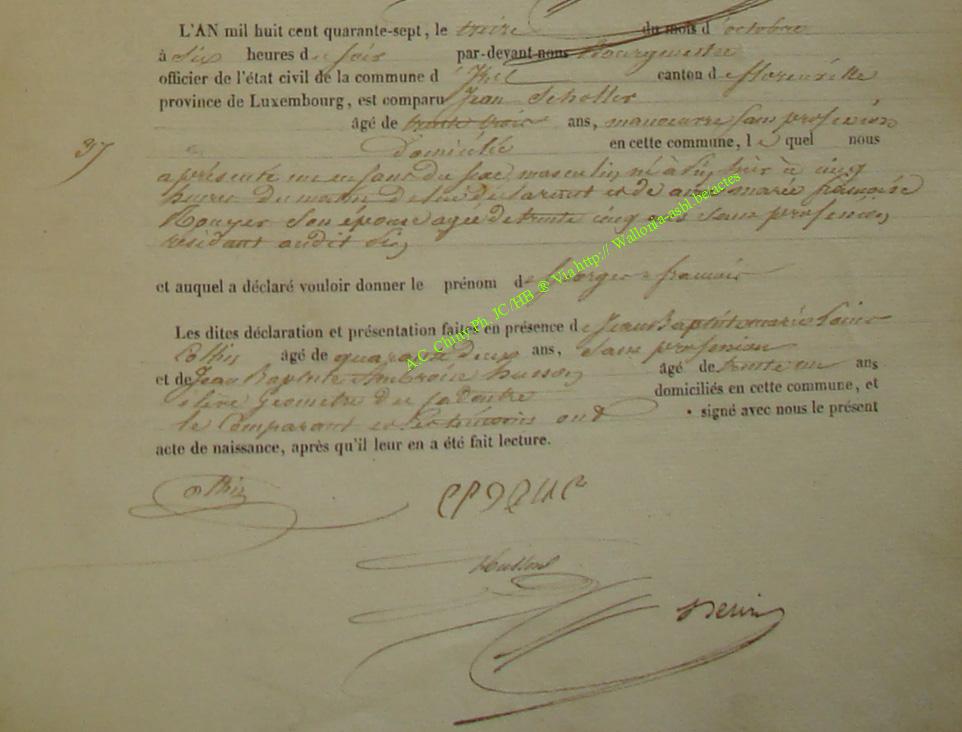 L'AN mil huit cent quarante-sept, le treize du mois d'octobre
à six heures du soir par-devant nous Bourgmestre
officier de l'état civil de la commune d'Izel canton de florenville
province de Luxembourg, est comparu Jean
âgé de trente trois ans, manoeuvre sans profession
37 domicilié en cette commune, lequel nous
a présenté un enfant du sexe masculin, né à hier à cinq
heures du matin de lui déclarant et de marie françoise
Rouyer son épouse agée de trente cinq ans sans profession
résidant audit
et auquel a déclaré vouloir donner le prénom de françois
Les dites déclaration et présentation faites en présence de Jean Baptiste marie
âgé de quarante deux ans, sans profession
et de Jean Baptiste Ambroise husson âgé de trente un ans
Géomètre du domiciliés en cette commune, et
le Comparant et les témoins ont signé avec nous le présent
acte de naissance, après qu'il leur en a été fait lecture.
Husson
A.C. Chiny Ph. JC /HB ® Via http:// Wallonia-asbl.be/actes